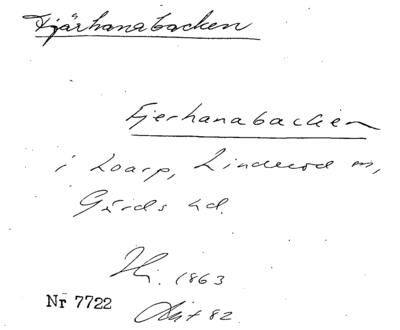 Tjärhanabacken
Fjerhanabacken
i Loarp, Linderöd sn,
Gärds hd.
Hi. 1863
Nr 7722
82